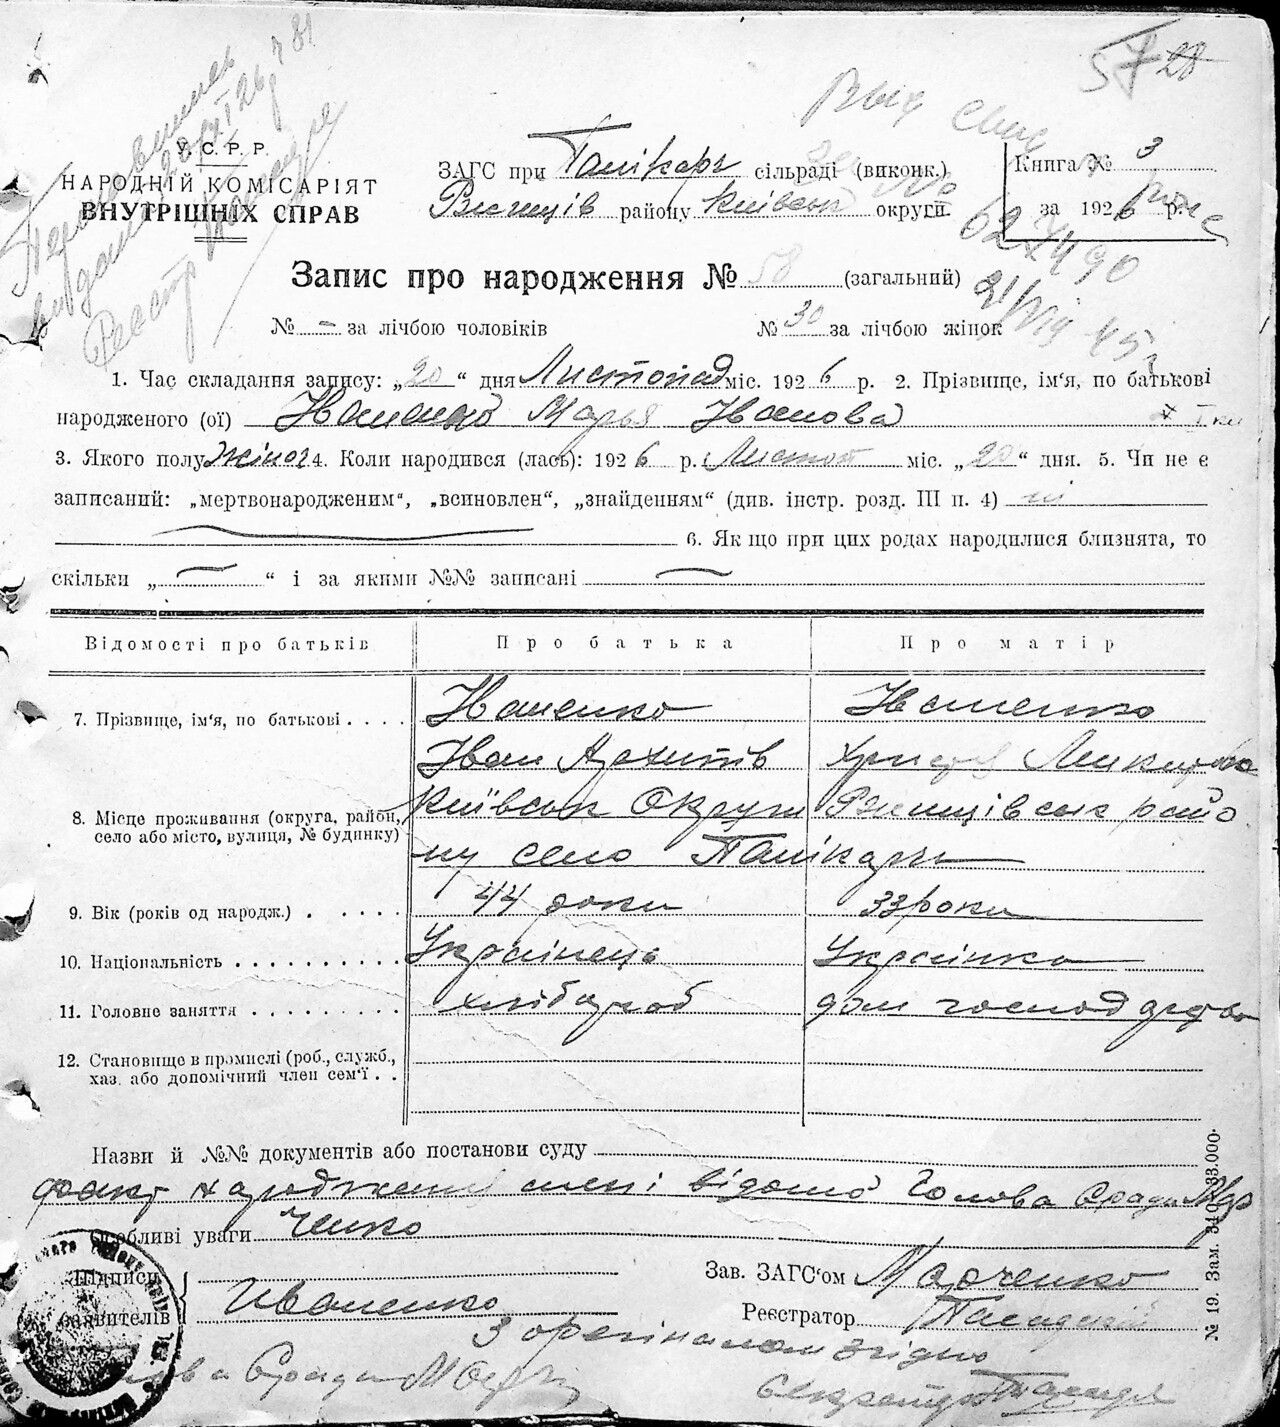 57 28
Выд свид
У. С. Р. Р.
НАРОДНІЙ КОМІСАРІЯТ
ВНУТРІШНІХ СПРАВ
ЗАГС при Панікарч сільраді (виконк.)
Ржищів району Київськ округи
Книга № 3
за 1926 р.
627490
Запис про народження № 58 (загальний)
№ – за лічбою чоловіків № 30 за лічбою жінок
1. Час складання запису: „20“ дня Листопад міс. 1926 р. 2. Прізвище, ім'я, по батькові
народженого (ої) Іваненко Марья Іванова
3. Якого полу жіноч 4. Коли народився (лась): 1926 р. Листоп міс. „20“ дня. 5. Чи не є
записаний: „мертвонародженим“, „всиновлен“, „знайденням“ (див. інстр. розд. III п. 4) ні
6. Якщо при цих родах народилися близнята, то
скільки „—“ і за якими №№ записані —
Відомості про батьків Про батька Про матір
7. Прізвище, ім'я, по батькові . . . . Іваненко Іваненко
Іван Архипів Христя Микитова
8. Місце проживання (округа, район, село або місто, вулиця, № будинку) Київськ Округи Ржищівськ райо
ну село Панікарчи
9. Вік (років од народж.) . . . . . 44 роки 33 роки
10. Національність . . . . . . . . . . Українець Українка
11. Головне заняття . . . . . . . . . хлібороб дом господарство
12. Становище в промислі (роб., службо., хаз. або допомічний член сем'ї . .
Назви й №№ документів або постанови суду
факт народження мені відомо Голова Сради Мар
Особливі уваги ченко
Підписи
заявителів Иваненко
Зав. ЗАГС'ом Марченко
Реєстратор
З орегіналом згідно
Секретар
№ 19. Зам. 340—33.000.